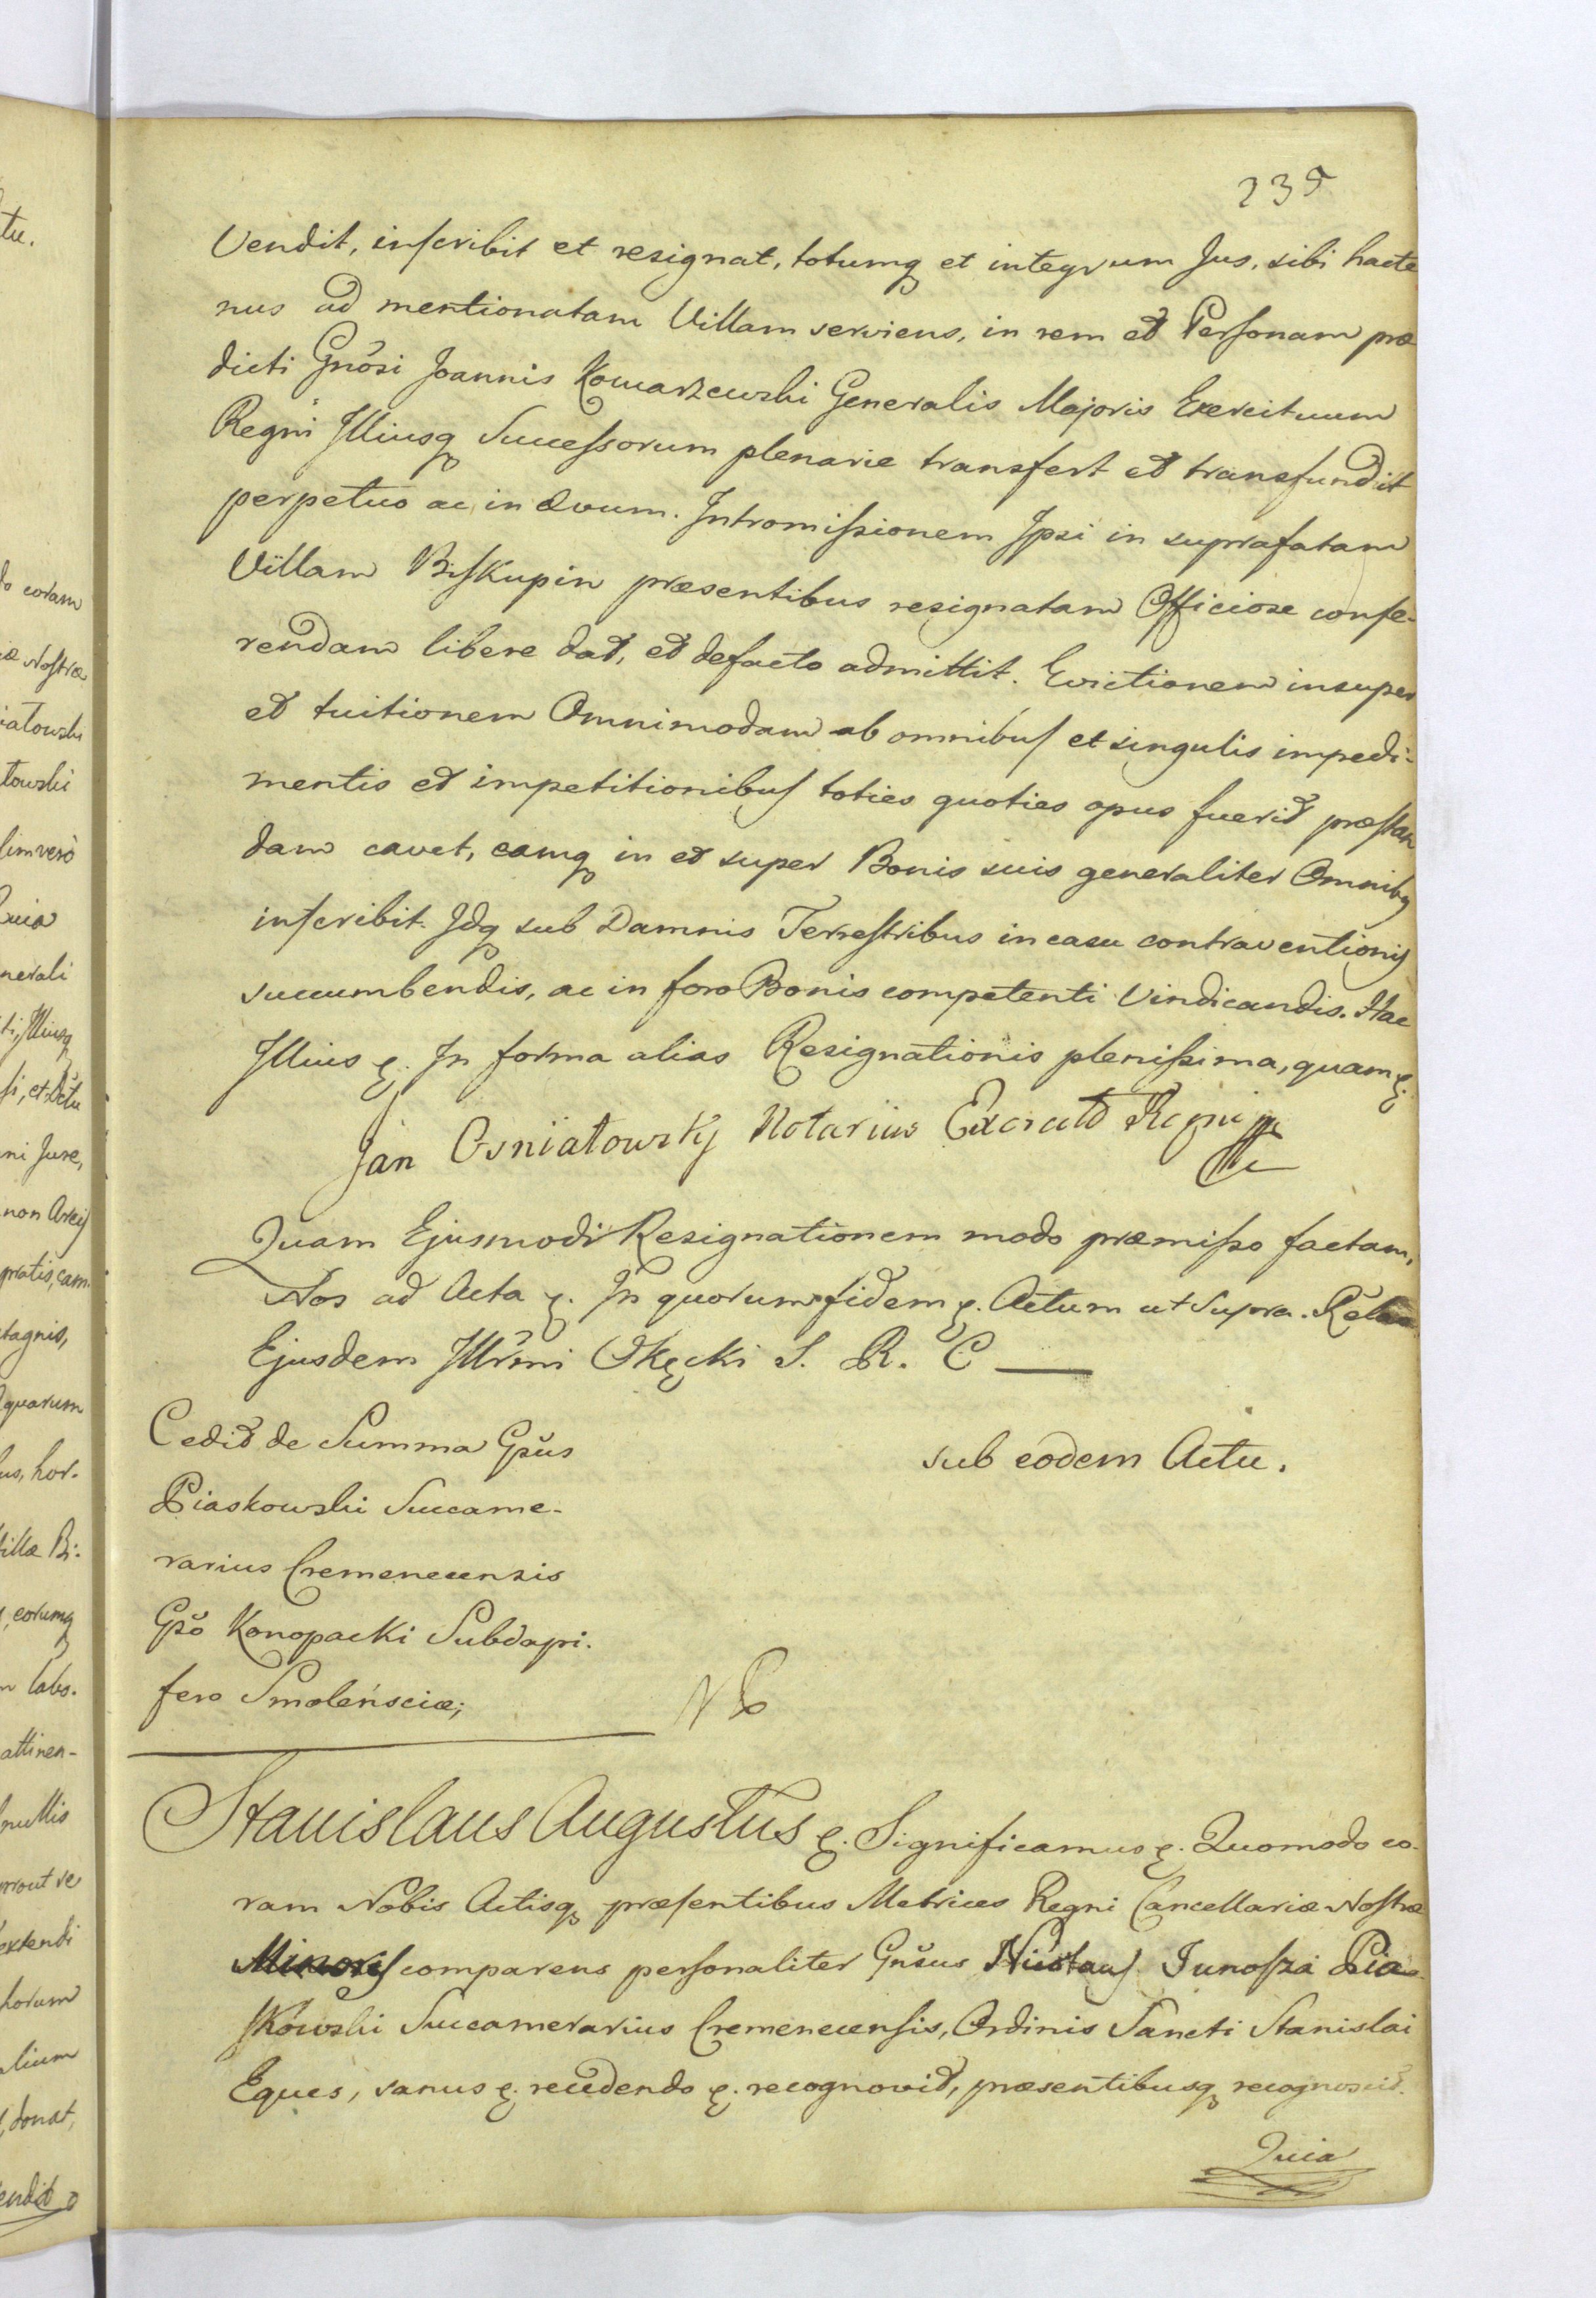 235
Vendit, inscribit et resignat, totumq et integrum Jus, sibi hacte
nus ad mentionatam Villam serviens, in rem et Personam præ
dicti Gnõsi Joannis Komarzewski Generalis Majoris Exercituum
Regni Illiusq Successorum plenarie transfert et transfundit
perpetuo ac in ævum. Intromissionem Ipsi in suprafatam
Villam Biskupin præsentibus resignatam Officiose confe-
rendam libere dat, et defacto admittit. Evictionem insuper
et tuitionem Omnimodam ab omnibus et singulis impedi-
mentis et impetitionibus toties quoties opus fuerit præstan
dam cavet, eamq in et super Bonis suis generaliter Omnibq
inscribit. Idq sub Damnis Terrestribus in casu contraventionis
succumbendis, ac in foro Bonis competenti Vindicandis. Hac
Illius ę. In forma alias Resignationis plenissima, quam ę.
Jan Osniałowsky Notarius Exercit Regni
Quam Ejusmodi Resignationem modo præmisso factam,
Nos ad Acta ę. In quorum fidem ę. Actum ut Supra. Rela
Ejusdem Illr̃mi Okęcki S. R. C
Cedit de Summa Gsũs
Piaskowski Succame-
rarius Cremenecensis
Gsõ Konopacki Subdapi-
fero Smoleńsciæ;
sub eodem Actu.
Stanislaus Augustus ę. Significamus ę. Quomodo co-
ram Nobis Actisq præsentibus Metrices Regni Cancellariæ Nostræ
Minoris comparens personaliter Gns̃us Junosza Pia-
skowski Succamerarius Cremenecensis, Ordinis Sancti Stanislai
Eques, sanus ę. recedendo ę. recognovit, præsentibusq recognoscit.
Quia
tu.
do coram
iæ Nostræ
iałowski
łowski
limvero
Quia
nerali
ti, Illiusq
ni Jure,
non Arcis
pratis, cam-
tagnis,
quarum
us, hor-
Villæ Bi-
, eorumq
n labo-
attinen-
nullis
prout se
extendi
horum
alium
, donat,
endit